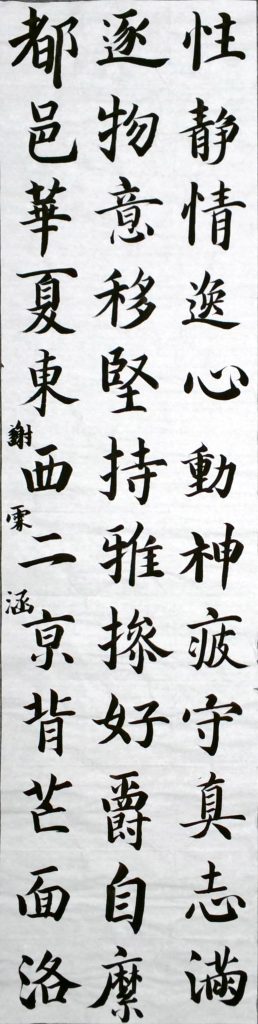 性靜情逸心動神疲守真志滿
逐物意移堅持雅操好爵自縻
都邑華夏東西二京背芒面洛
謝霂涵